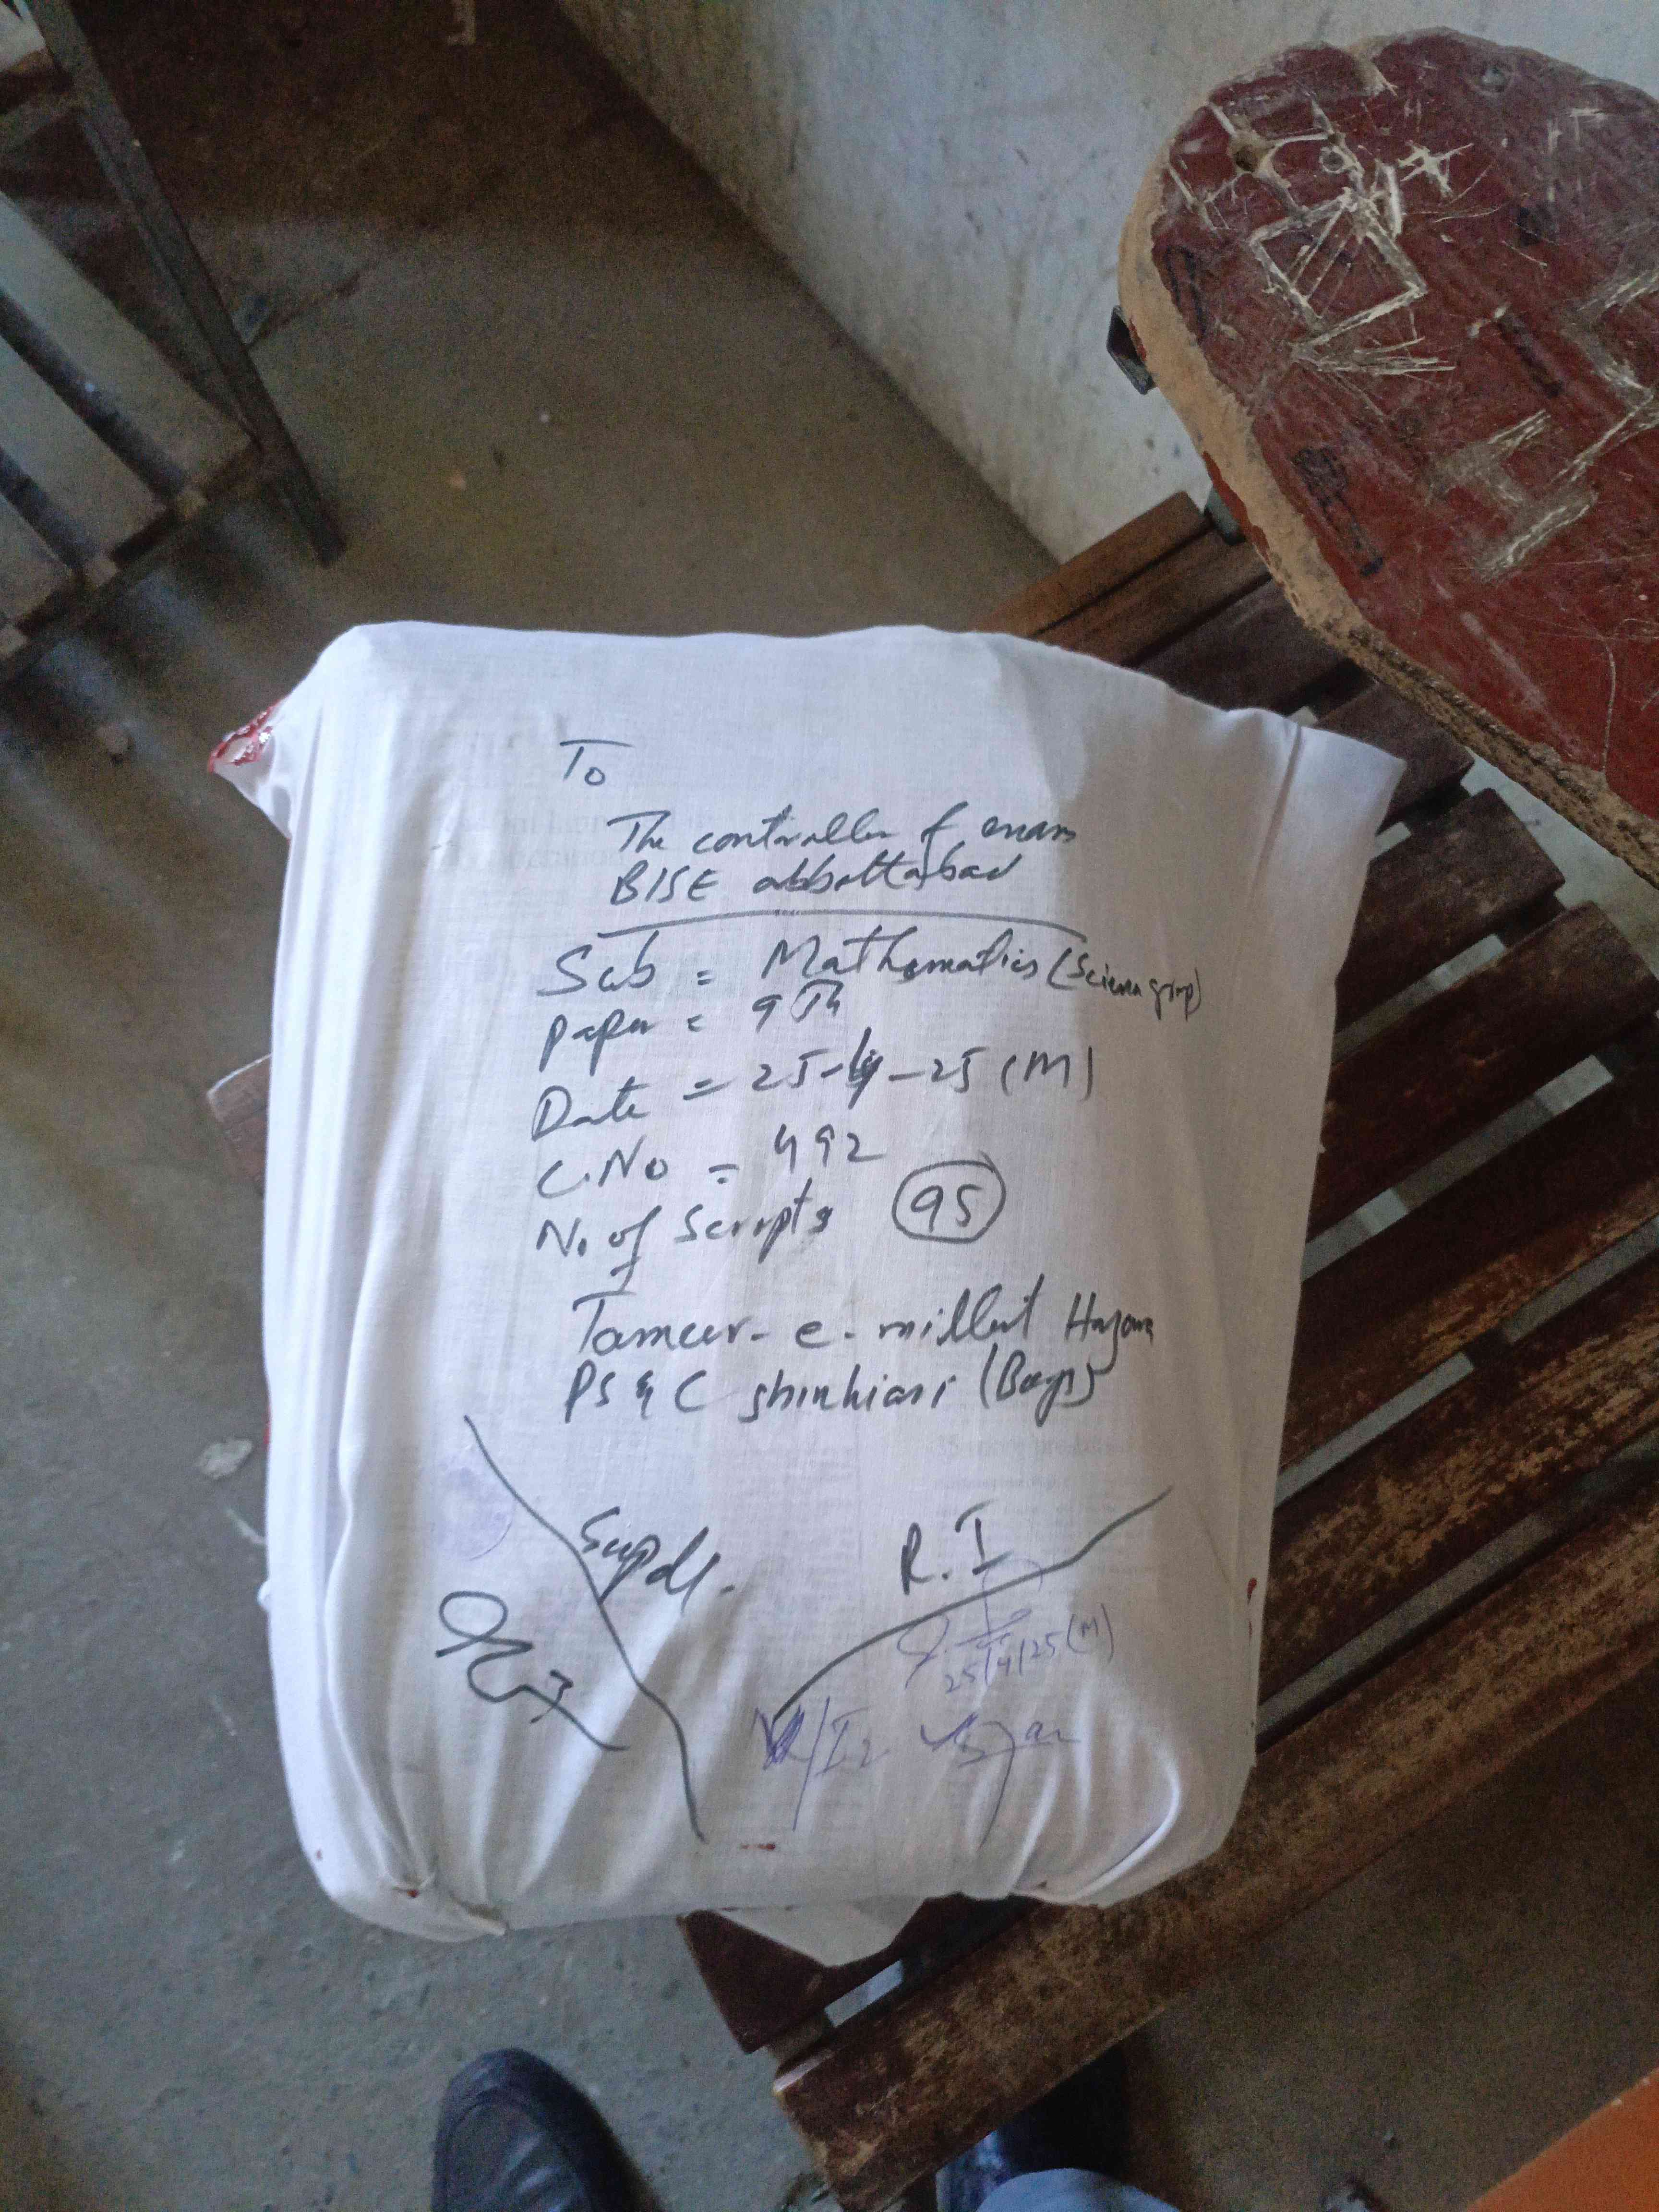 To
The controller of exams
BISE abbottabad
Sub = Mathematics (Science group)
Paper = 9th
Date = 25-4-25 (M)
C.No = 492
No. of Scripts 95
Tameer-e-millat Hazara
PS & C shinkiari (Boys)
Supdt.
R.I
25/4/25 (M)